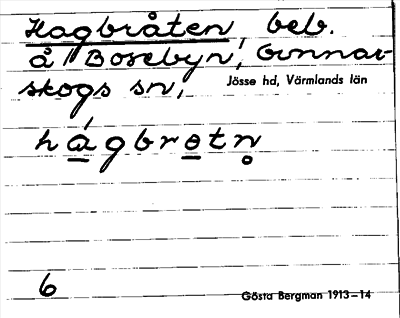 Hagbråten, beb.
å Bosebyn, Gunnar-
skogs sn,
Jösse hd, Värmlands län
há̱gbro̱tn̥
6
Gösta Bergman 1913–14